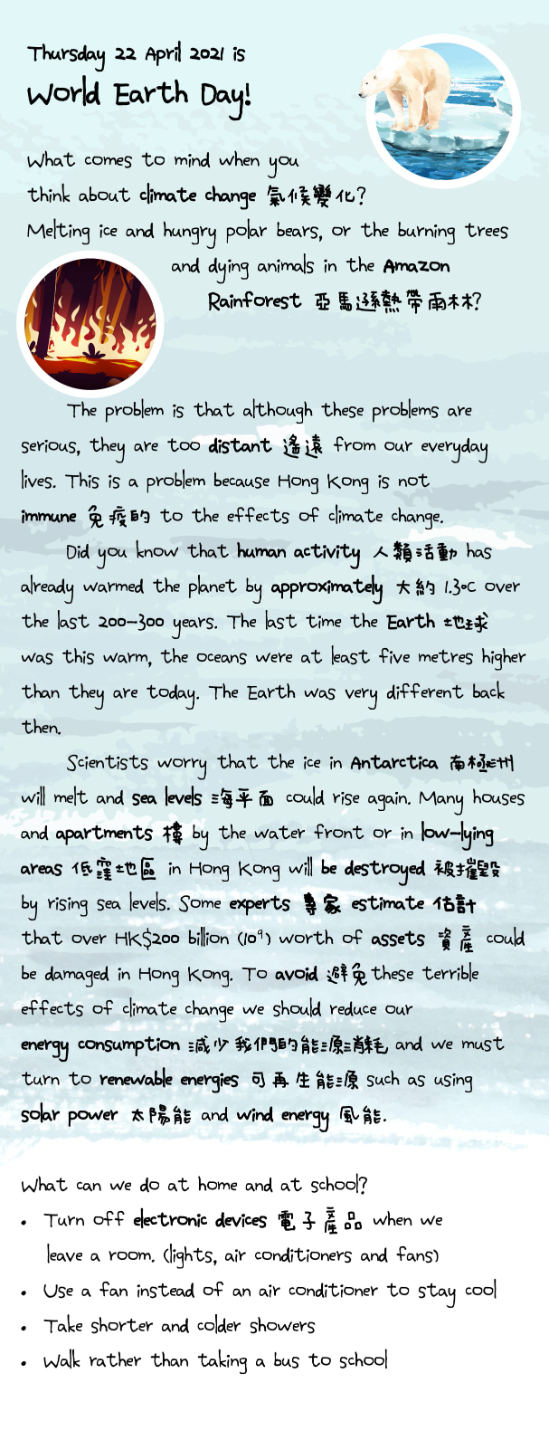 Thursday 22 April 2021 is
World Earth Day!
What comes to mind when you
think about climate change 氣候變化?
Melting ice and hungry polar bears, or the burning trees
and dying animals in the Amazon
Rainforest 亞馬遜熱帶雨林?
The problem is that although these problems are
serious, they are too distant 遙遠 from our everyday
lives. This is a problem because Hong Kong is not
immune 免疫的 to the effects of climate change.
Did you know that human activity 人類活動 has
already warmed the planet by approximately 大約 1.3°C over
the last 200-300 years. The last time the Earth 地球
was this warm, the oceans were at least five metres higher
than they are today. The Earth was very different back
then.
Scientists worry that the ice in Antarctica 南極洲
will melt and sea levels 海平面 could rise again. Many houses
and apartments 樓 by the water front or in low-lying
areas 低窪地區 in Hong Kong will be destroyed 被摧毀
by rising sea levels. Some experts 專家 estimate 估計
that over HK$200 billion (10⁹) worth of assets 資產 could
be damaged in Hong Kong. To avoid 避免 these terrible
effects of climate change we should reduce our
energy consumption 減少我們的能源消耗 and we must
turn to renewable energies 可再生能源 such as using
solar power 太陽能 and wind energy 風能.
What can we do at home and at school?
• Turn off electronic devices 電子產品 when we
leave a room. (lights, air conditioners and fans)
• Use a fan instead of an air conditioner to stay cool
• Take shorter and colder showers
• Walk rather than taking a bus to school